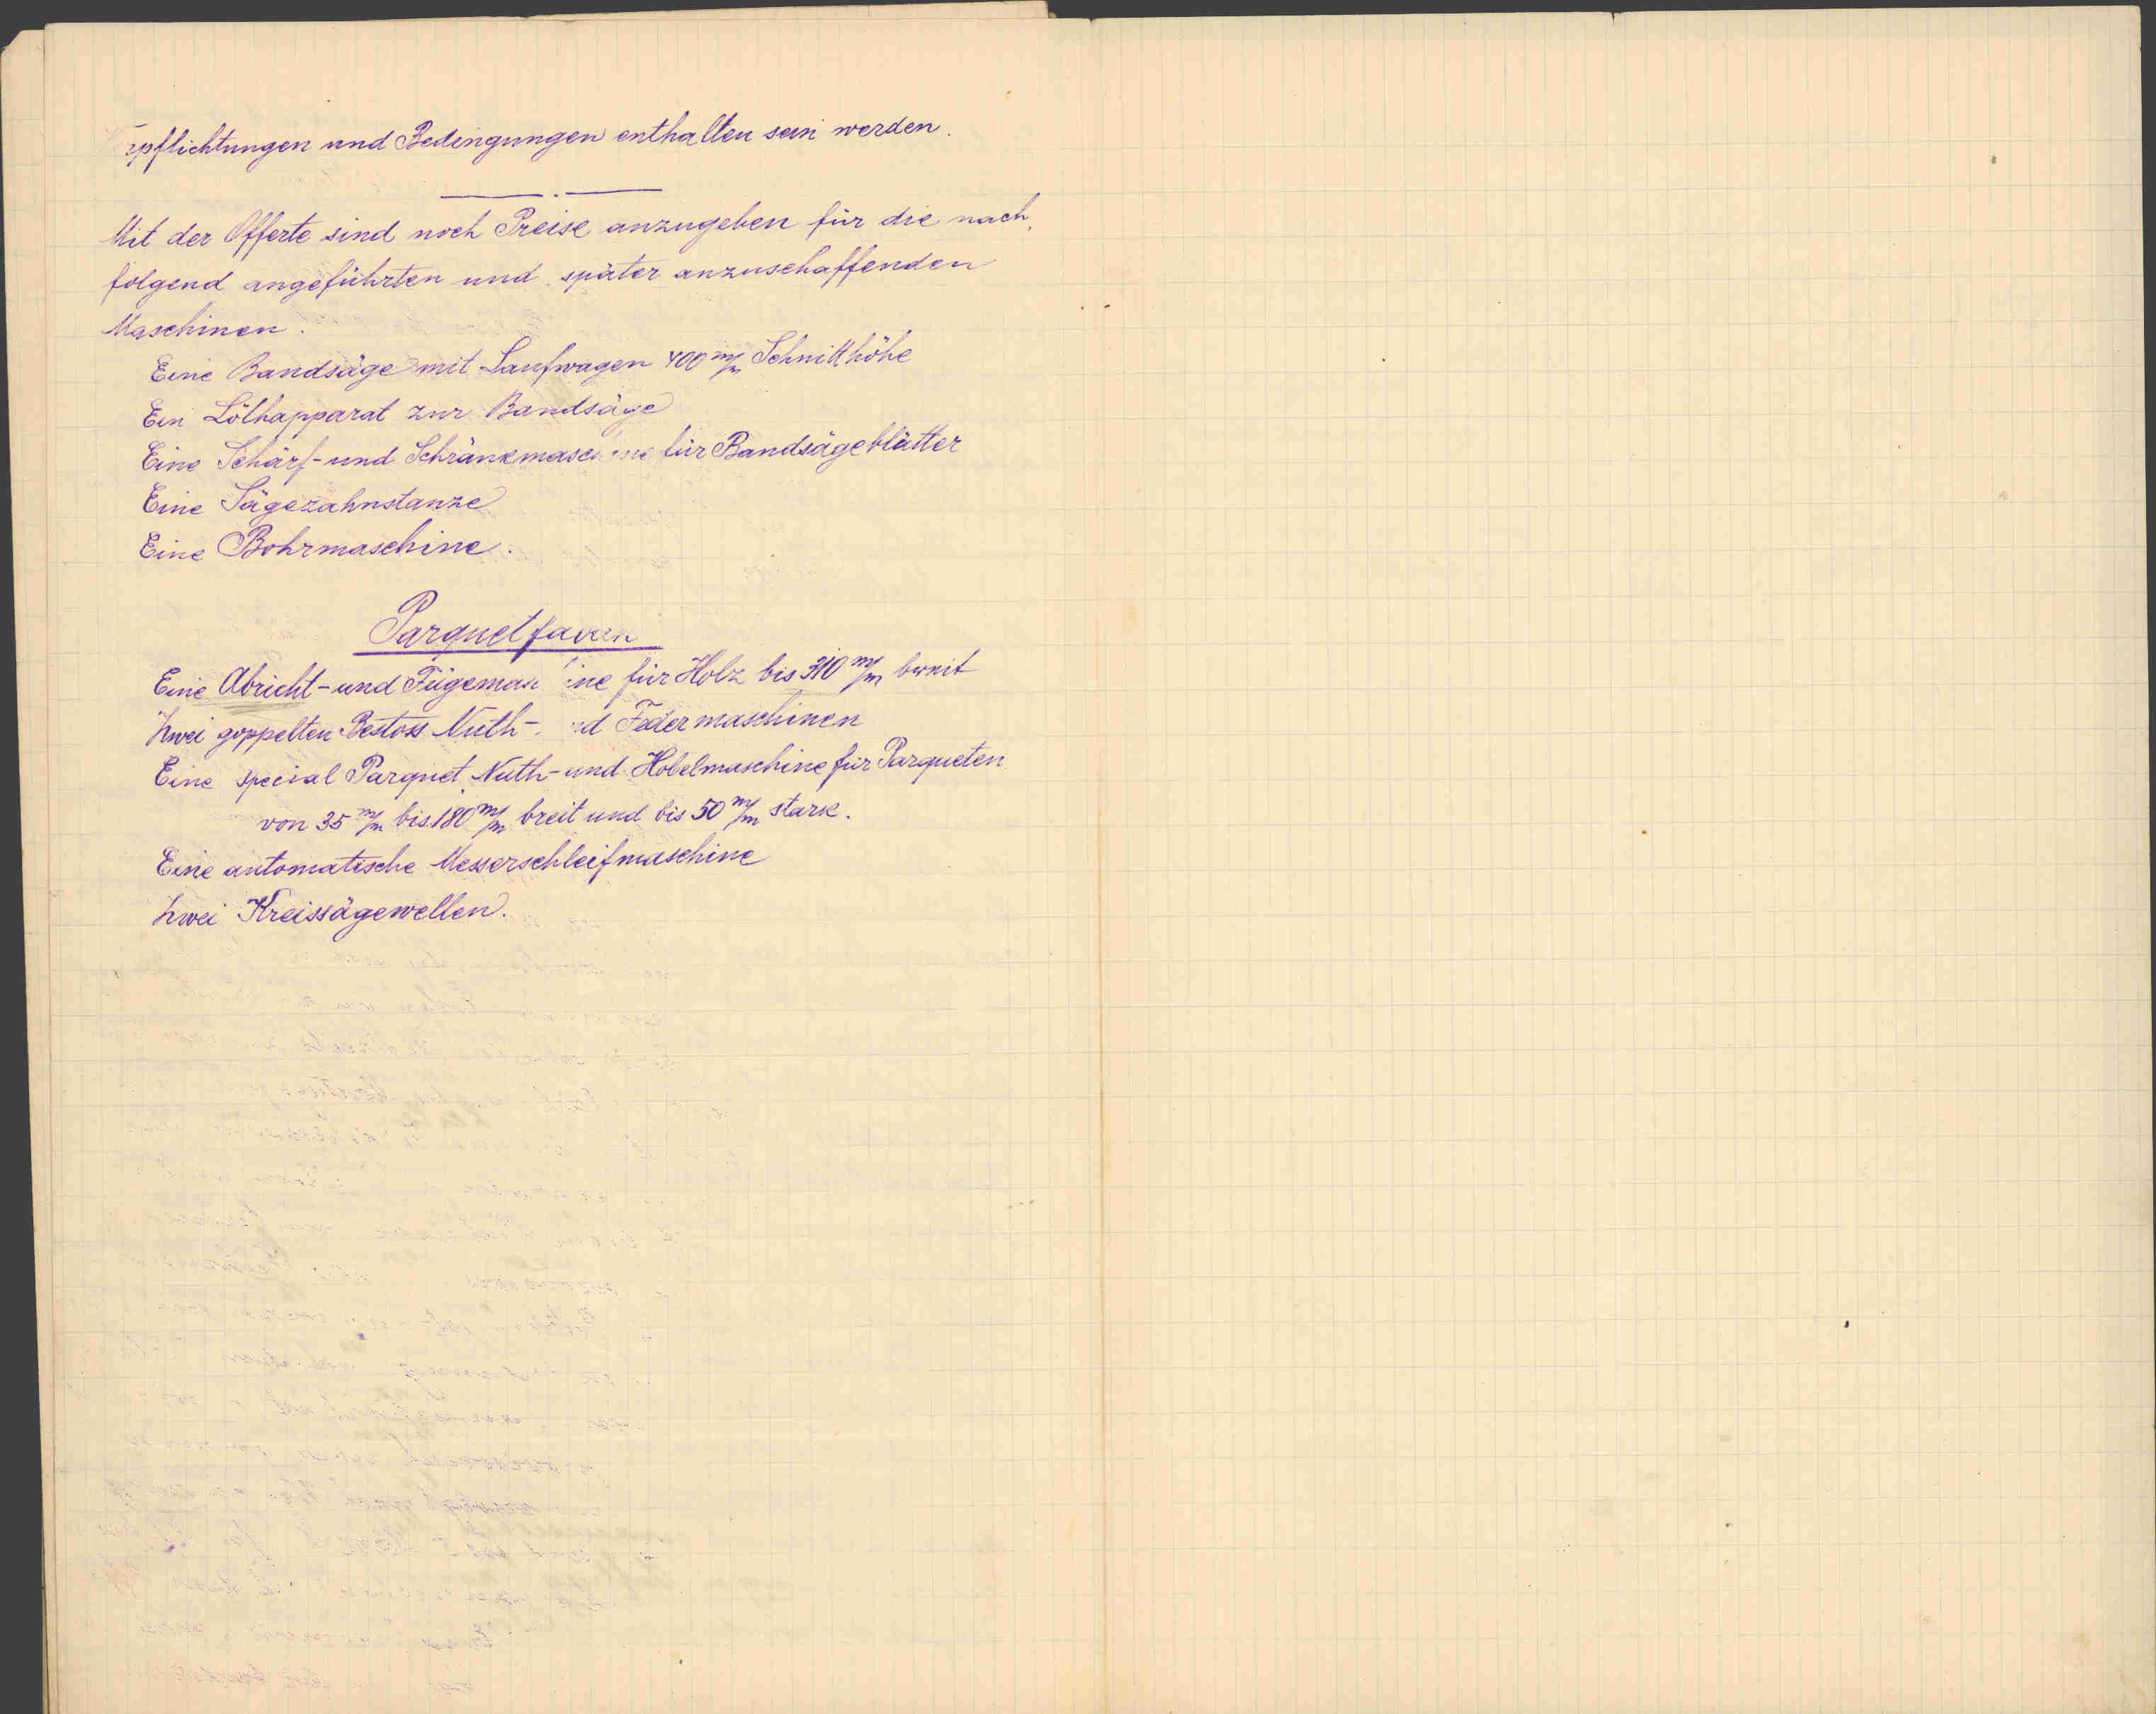 rpflichtungen und Bedingungen enthalten sein werden.
Mit der Offerte sind noch Preise anzugeben für die nach-
folgend angeführten und später anzuschaffenden
Maschinen.
Eine Bandsäge mit Laufwagen 400 m/m Schnitthöhe
Ein Löthapparat zur Bandsäge
Eine Schärf- und Schränkmaschine für Bandsägeblätter
Eine Sägezahnstanze
Eine Bohrmaschine.
Parquet
Eine Abricht- und Fügemaschine für Holz bis 310 m/m breit
Zwei goppelten Bestoss Nuth- und Federmaschinen
Eine special Parquet Nuth- und Hobelmaschine für Parqueten
von 35 m/m bis 180 m/m breit und bis 50 m/m stark.
Eine automatische Messerschleifmaschine
Zwei Kreissägewellen.